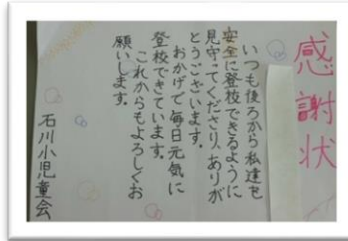 感謝状
いつも後ろから私達を
安全に登校できるように
見守ってくださり、ありが
とうございます。
おかげで毎日元気に
登校できています。
これからもよろしくお
願いします。
石川小児童会